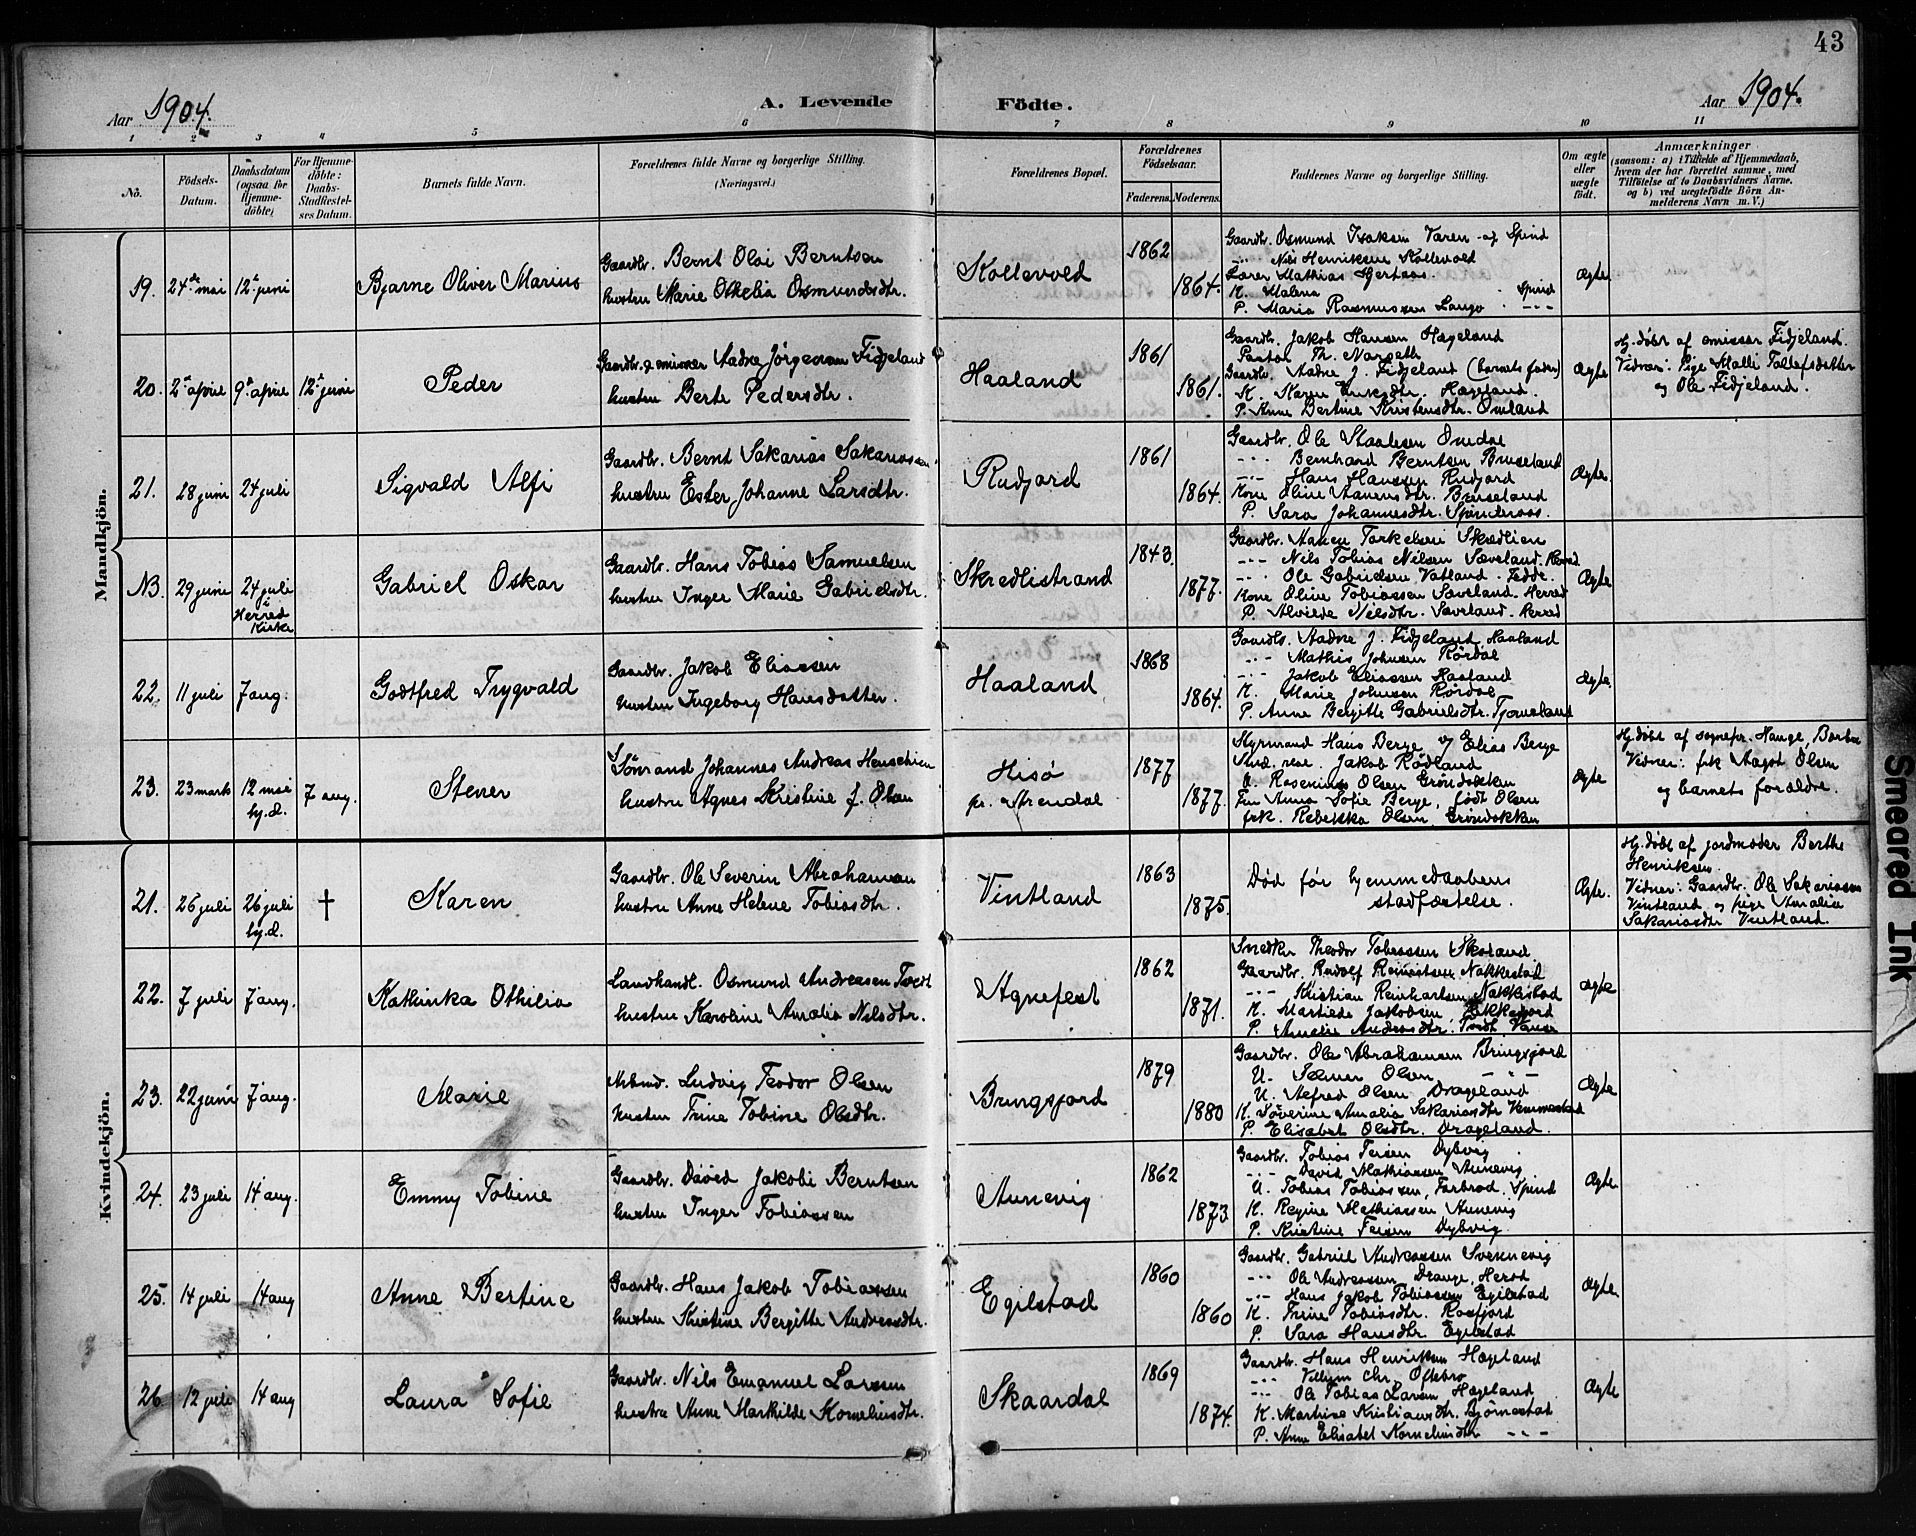 43
Aar 1904.
A. Levende Födte.
Aar 1904.
1 2 3 4 5 6 7 8 9 10 11
No.
Födsels-
Datum.
Daabsdatum
(ogsaa for
Hjemme-
döbte)
For Hjemme-
döbte:
Daabs-
Stadfæstel-
ses Datum.
Barnets fulde Navn.
Forældrenes fulde Navne og borgerlige Stilling.
(Næringsvei.)
Forældrenes Bopæl.
Forældrenes
Födselsaar.
Faderens. Moderens.
Faddernes Navne og borgerlige Stilling.
Om ægte
eller
uægte
födt.
Anmærkninger
(saasom: a) i Tilfælde af Hjemmedaab,
hvem der har forrettet samme, med
Tilföielse af to Daabsvidners Navne.
og b) ved uægtefödte Börn An-
melderens Navn m. V.)
Mandkjön.
19. 24de mai 12te juni
Bjarne Oliver Marius
Gaardbr. Bernt Olai Berntsen
hustru Marie Othelia Osmundsdtr.
Kollevold
1862
1864.
Gaardbr. Osmund Isaksen Varen af Spind
-"- Nils Henriksen Kollevold
Lærer Mathias Hjertaas
K. Malena " Spind
P. Maria Rasmussen Lango -"-
Ægte
20. 2den april 9de april 12te juni
Peder
Gaardbr. & emissær Aadne Jörgensen Fidjeland
hustru Berte Pedersdtr.
Haaland
1861
1861.
Gaardbr. Jakob Hansen Hægeland
Pastor Th. Narseth
Gaardbr. Aadne J. Fidjeland (barnets fader)
K. Karen Eriksdtr. Hægeland.
P. Anne Bertine Kristensdtr. Omland
Ægte
Hj.döbt af emissær Fidjeland.
Vidner: Pige Malli Tollefsdatter
og Ole Fidjeland.
21. 28 juni 24 juli
Sigvald Alfi
Gaardbr. Bernt Sakarias Sakariassen
hustru Ester Johanne Larsdtr.
Rudjord
1861
1864.
Gaardbr. Ole Staalesen Omdal
-"- Bernhard Berntsen Bruseland
-"- Hans Hanssen Rudjord
Kone Oline Aanensdtr. Bruseland
P. Sara Johannesdtr.
Ægte
NB. 29 juni 24 juli
i
Herred
Kirke
Gabriel Oskar
Gaardbr. Hans Tobias Samuelsen
hustru Inger Marie Gabrielsdtr.
Skredlistrand
1843
1877.
Gaardbr. Aanen Torkelsen Skredlien
-"- Nils Tobias Nilsen Sæveland. Herred
-"- Ole Gabrielsen Vatland. Fedde.
Kone Oline Tobiassen Sæveland. Herred
P. Alvilde Nilsdtr. Sæveland. Herred
Ægte
22. 11 juli 7 aug.
Godtfred Trygvald
Gaardbr. Jakob Eliassen
hustru Ingeborg Hansdatter.
Haaland
1868
1864.
Gaardb. Aadne J. Fidjeland Haaland
-"- Mathis Johnsen Rördal
-"- Jakob Eliassen Haaland
K. Marie Johnsen Rördal
P. Anne Bergitte Gabrielsdtr. Tjomeland
Ægte
23. 23 marts 12 mai
hj.d. 7 aug.
Stener
Johannes Andreas Henschien
hustru Agnes Kristine f. Olsen
Hisö
pr. Arendal
1877
1877.
Styrmand Hans Berge og Elias Berge
Stud. real. Jakob Rödland
U. Rasenius Olsen Gröndokken
Fru Anna Sofie Berge, född Olsen
frk. Rebekka Olsen, Gröndokken
Ægte
Hj.döbt af sognepr. Hauge, Barbu
Vidner: frk Aagot Olsen
og barnets forældre.
Kvindekjön.
21. 26 juli 26 juli
hj.d. †
Karen
Gaardbr. Ole Severin Abrahamsen
hustru Anne Helene Tobiasdtr.
Vintland
1863
1875.
Död för hjemmedaabens
stadfæstelse.
Ægte.
Hj.döbt af jordmoder Berthe
Henriksen.
Vidner: Gaardbr. Ole Sakariassen
Vintland og pige Amalia
Sakariasdtr Vintland.
22. 7 juli 7 aug.
Kathinka Othilia
Landhandl. Osmund Andreasen Tvedt
hustru Karoline Amalia Nilsdtr.
Agnefest
1862
1871.
Snedker Theodor Tobiassen
Gaardbr. Rudolf Nakkestad
-"- Kristian Reinhartsen Nakkestad
K. Martilde Jakobsen,
P. Amalie Andreasdtr. Tvedt Vanse
Ægte
23. 22 juni 7 aug.
Marie
Arbmd. Ludvig Teodor Olsen
hustru Trine Tobine Olsdtr.
Bringsjord
1879
1880
Gaardbr. Ole Abrahamsen Bringsjord
U. Selmer Olsen -"-
U. Alfred Olsen Drageland
K. Söverine Amalia Sakariasdtr Vemmestad
P. Elisabet Olsdtr. Drageland.
Ægte
24. 23 juli 14 aug.
Emmy Tobine
Gaardbr. David Jakobi Berntsen
hustru Inger Tobiassen
Aunevig
1862
1873
Gaardbr. Tobias Feisen Dybvig
-"- David Mathiassen Aunevig
U. Tobias Tobiassen, Farbrod. Spind
K. Regine Mathiassen Aunevig
P. Kristine Feisen Dybvig
Ægte.
25. 14 juli 14 aug
Anne Bertine
Gaardbr. Hans Jakob Tobiassen
hustru Kristine Bergitte Andreasdtr.
Egilstad
1860
1860
Gaardbr. Gabriel Andreassen Svennevig
-"- Ole Andreassen Drange, Herad
-"- Hans Jakob Tobiassen Egilstad
K. Trine Tobiasdtr. Rosfjord
P. Sara Hansdtr Egilstad
Ægte
26 12 juli 14 aug
Laura Sofie
Gaardbr. Nils Emanuel Larsen
hustru Anne Markilde Korneliusdtr.
Skaardal
1869
1874.
Gaardbr. Hans Henriksen Hægeland
-"- Vilhjem Chr. Öftebro
-"- Ole Tobias Larsen Hægeland
K. Martine Kristiansdtr. Björnestad
P. Anne Elisabet Korneliusdtr -"-
Ægte
Smeared Ink